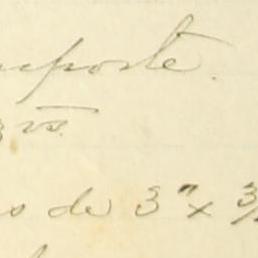 mposte.
3 vs.
s de 3" x 3/